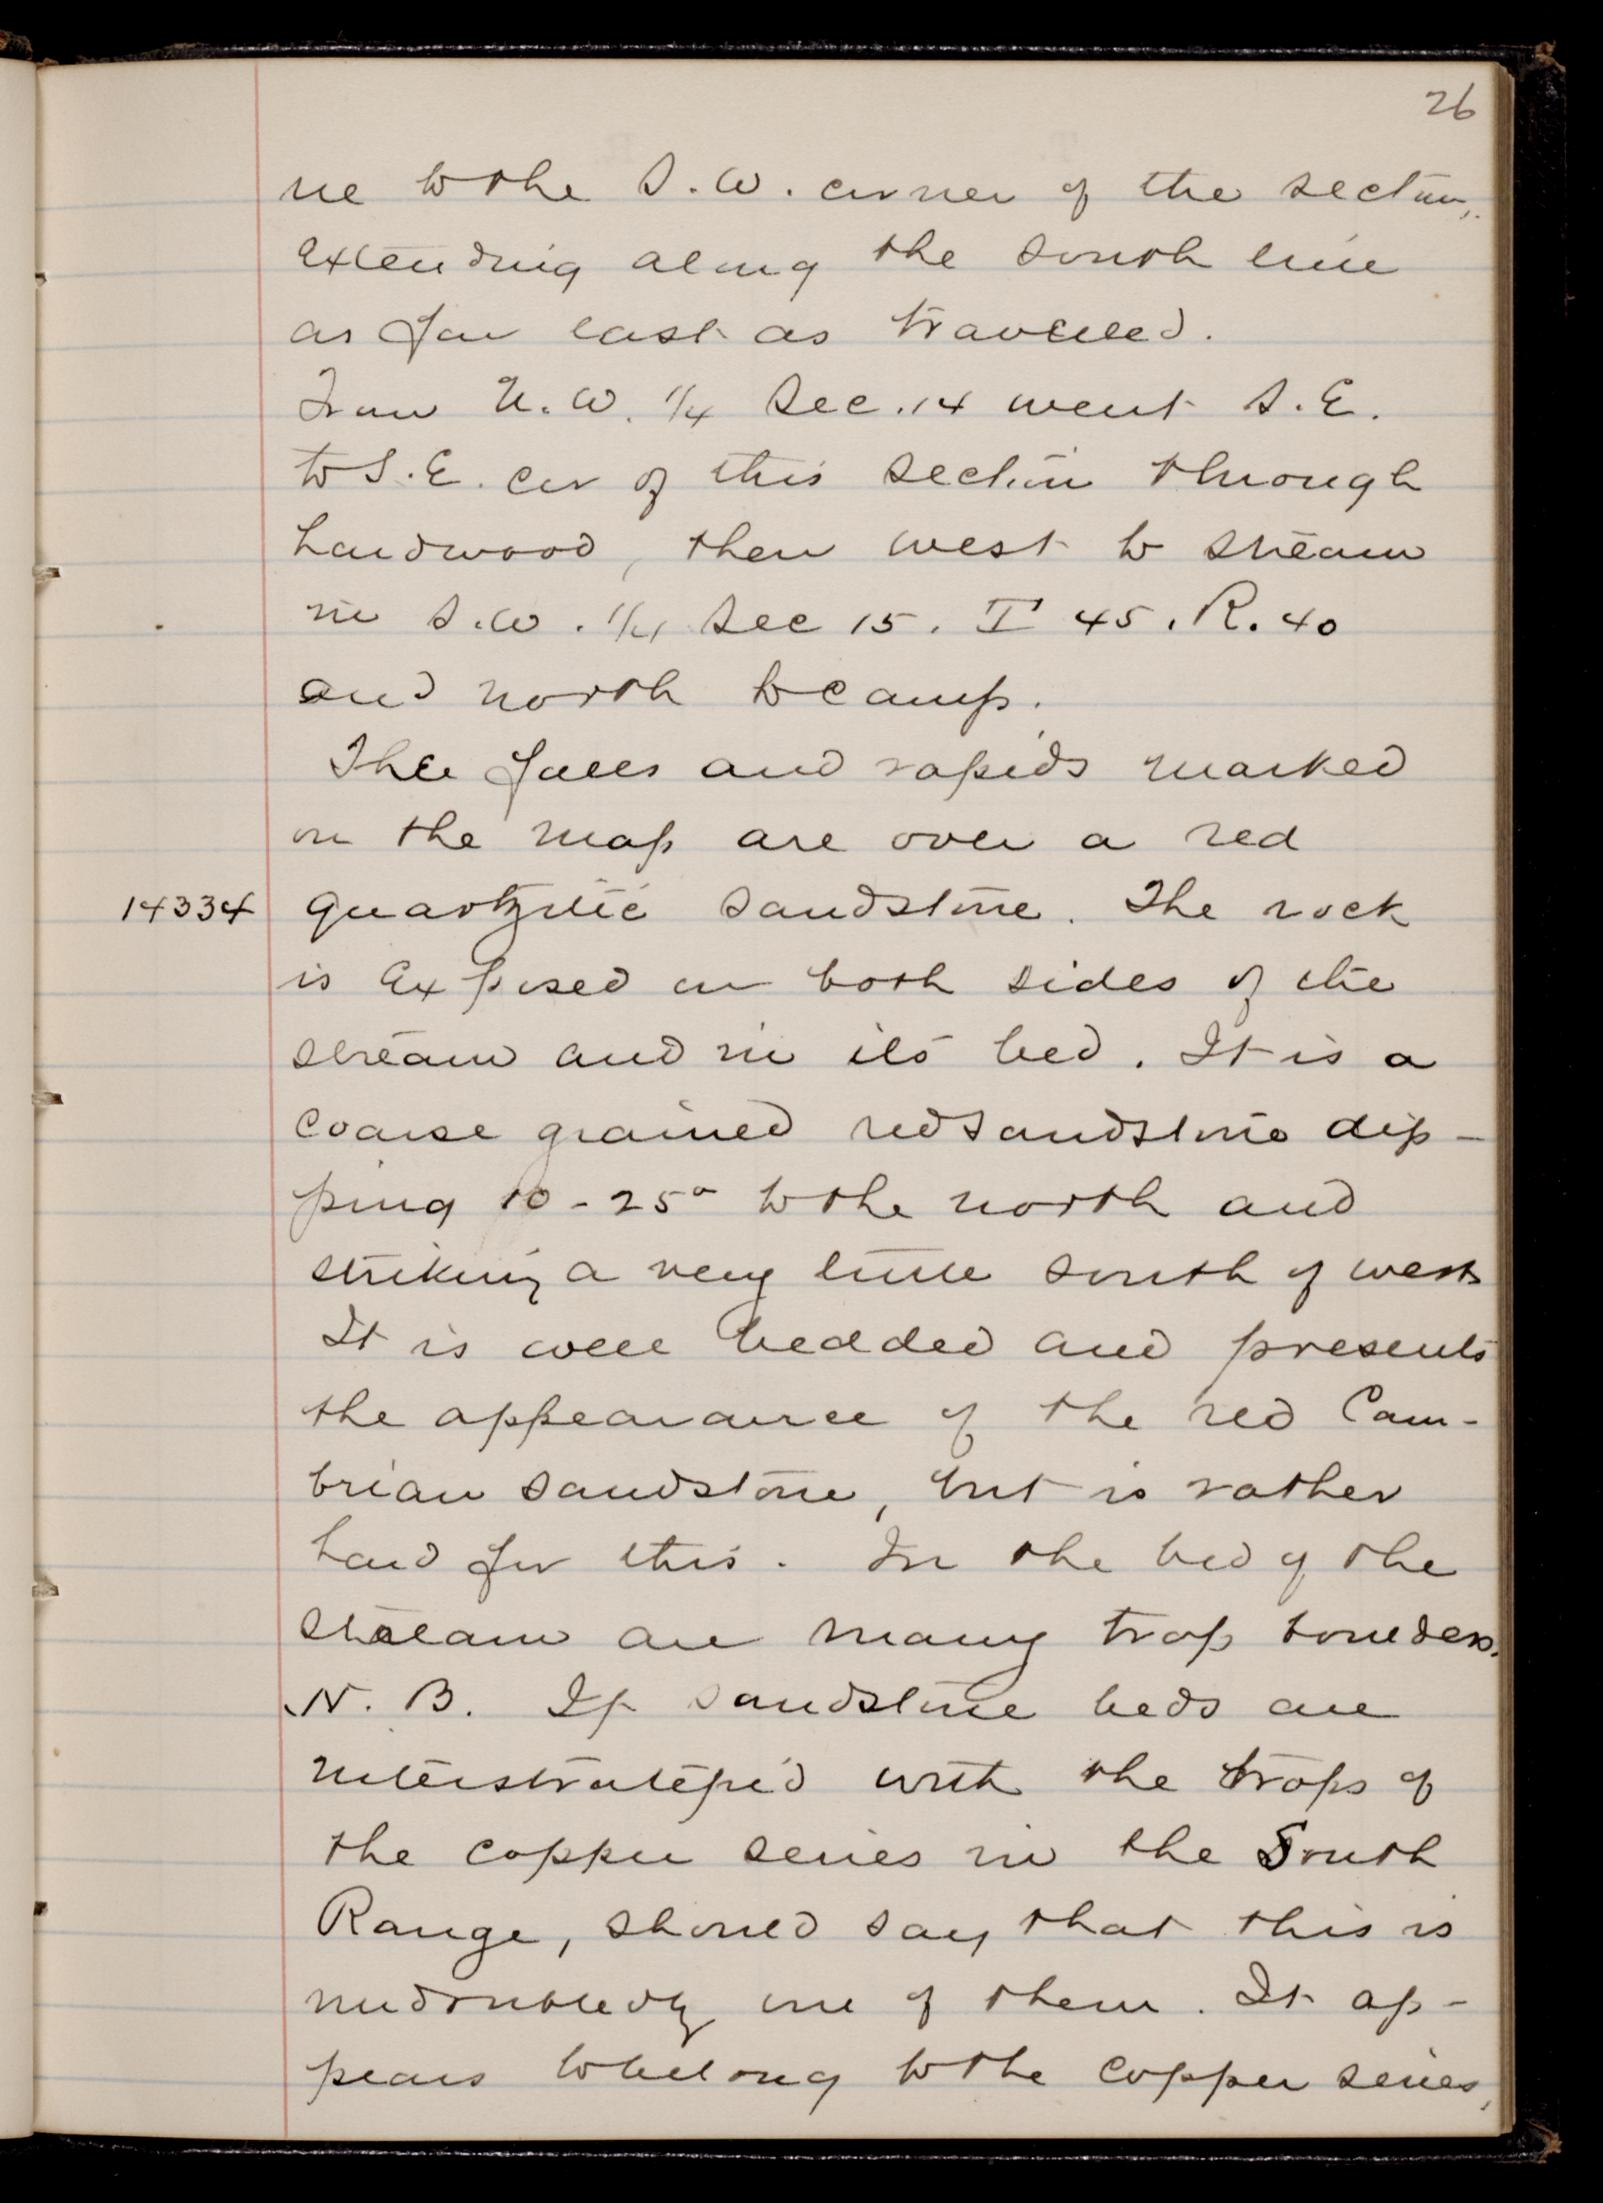 26
ue to the S.W. corner of the section,
extending along the south line
as far east as travelled.
From N.W. 1/4 Sec. 14 went S.E.
to S.E. cor of this section through
hardwood, then west to stream
in S.W. 1/4 Sec 15. T 45. R. 40
and north to camp.
The falls and rapids marked
on the map are over a red
14334 quartzitic sandstone. The rock
is exposed on both sides of the
stream and in its bed. It is a
coarse grained red sandstone dip-
ping 10-25° to the north and
striking a very little south of west
It is well bedded and presents
the appearance of the red Cam-
brian sandstone, but is rather
hard for this. In the bed of the
stream are many trap boulders.
N.B. If sandstone beds are
interstratefied with the traps of
the copper series in the South
Range, should say that this is
undoubtedly one of them. It ap-
pears to belong to the copper series,